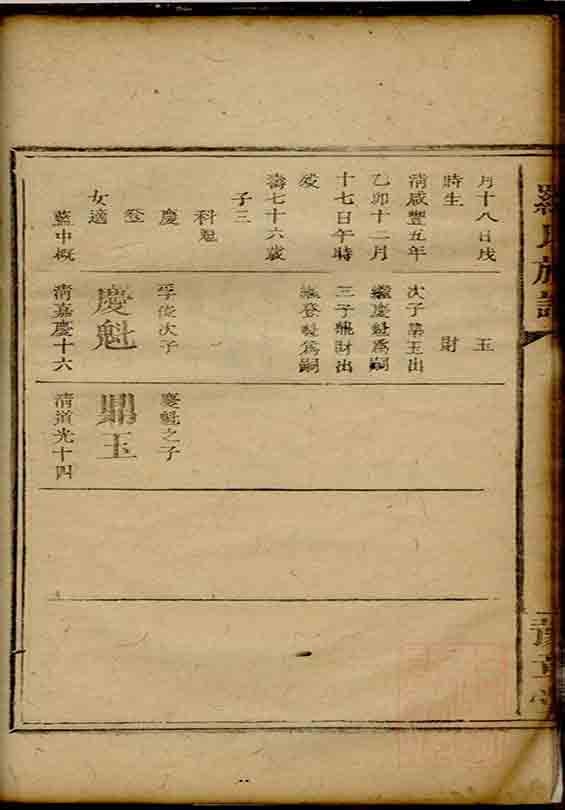 羅氏族譜
豫章堂
月十八日戌
時生
清咸豐五年
乙卯十二月
十七日午時
歿
壽七十六歲
子三
科魁
慶
登
女適
藍中概
玉
財
次子鼎玉出
繼慶魁爲嗣
三子龍財出
繼登魁爲嗣
孚俊次子
慶魁
清嘉慶十六
慶魁之子
鼎玉
清道光十四